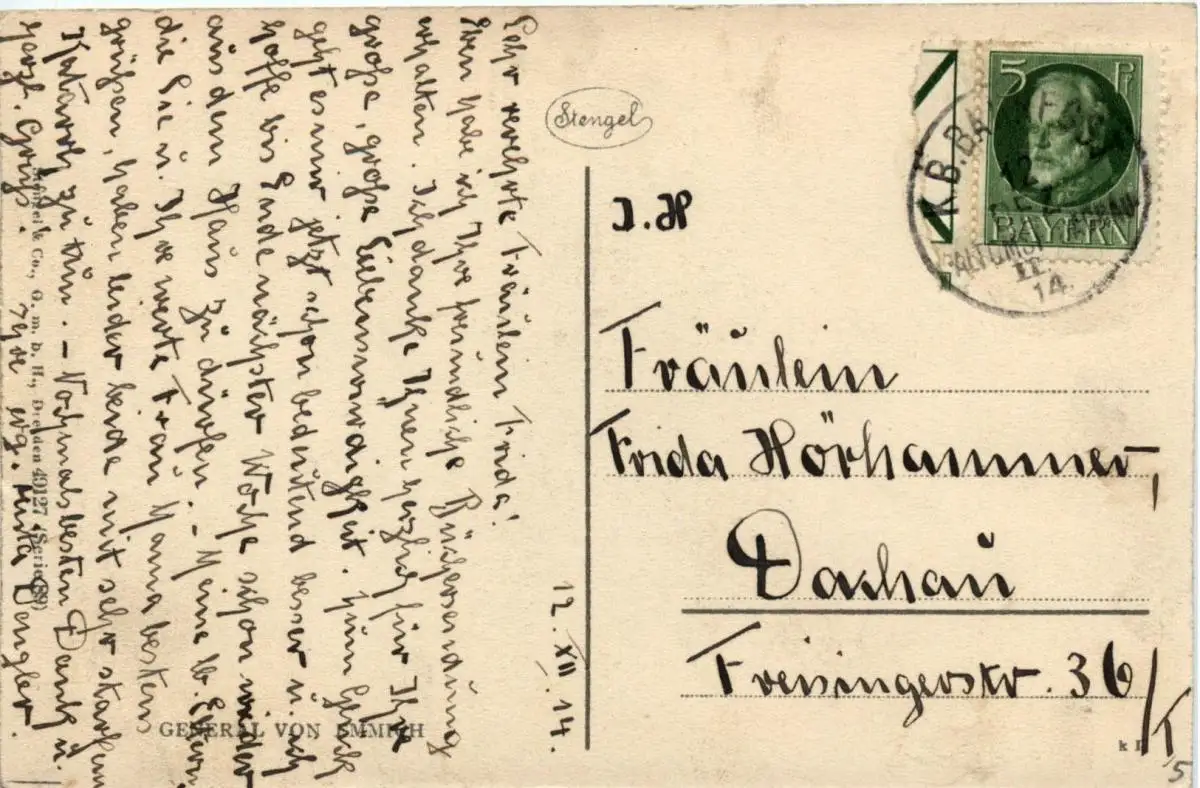 Sehr verehrte Fräulein Frida!
Eben habe ich Ihre freundliche Büchersendung
erhalten. Ich danke Ihnen herzlich für Ihre
große, große Liebenswürdigkeit. Zum Glück
geht es mir jetzt schon bedeutend besser u. ich
hoffe bis Ende nächster Woche schon wieder
aus dem Haus zu dürfen. - Meine lb. Eltern
die Sie u. Ihre werte Frau Mama bestens
grüßen, haben leider beide mit sehr starkem
Katarrh zu tun. - Nochmals besten Dank u.
herzl. Gruß.
Ihre erg. Dengler.
12. XII. 14.
Stengel & Co., G. m. b. H., Dresden 49127 (Serie 89)
GENERAL VON EMMICH
Stengel
5 Pf
BAYERN
K.B.
12
II
14.
J. H
Fräulein
Frida Hörhammer,
Dachau
Freisingerstr. 36/I
5